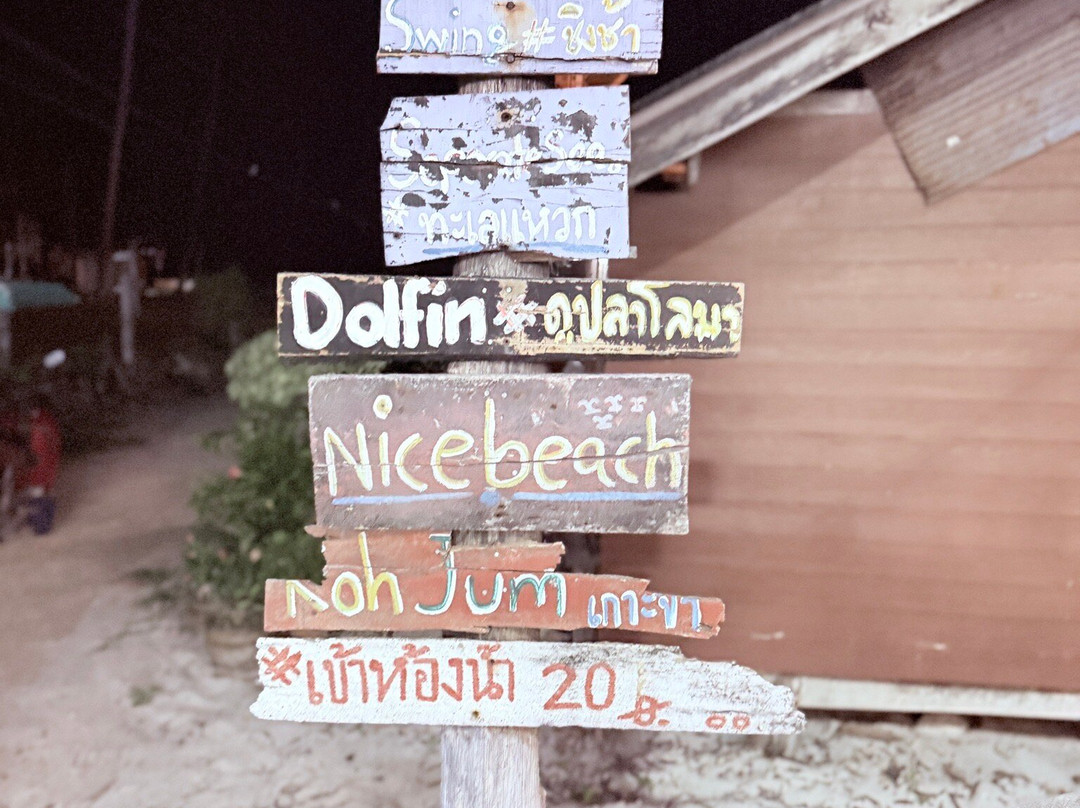 Swing # ชิงช้า
Seperate Sea
* ทะเลแหวก
Dolfin * ดูปลาโลมา
Nice beach
Koh Jum เกาะจำ
* เข้าห้องน้ำ 20 ฿.